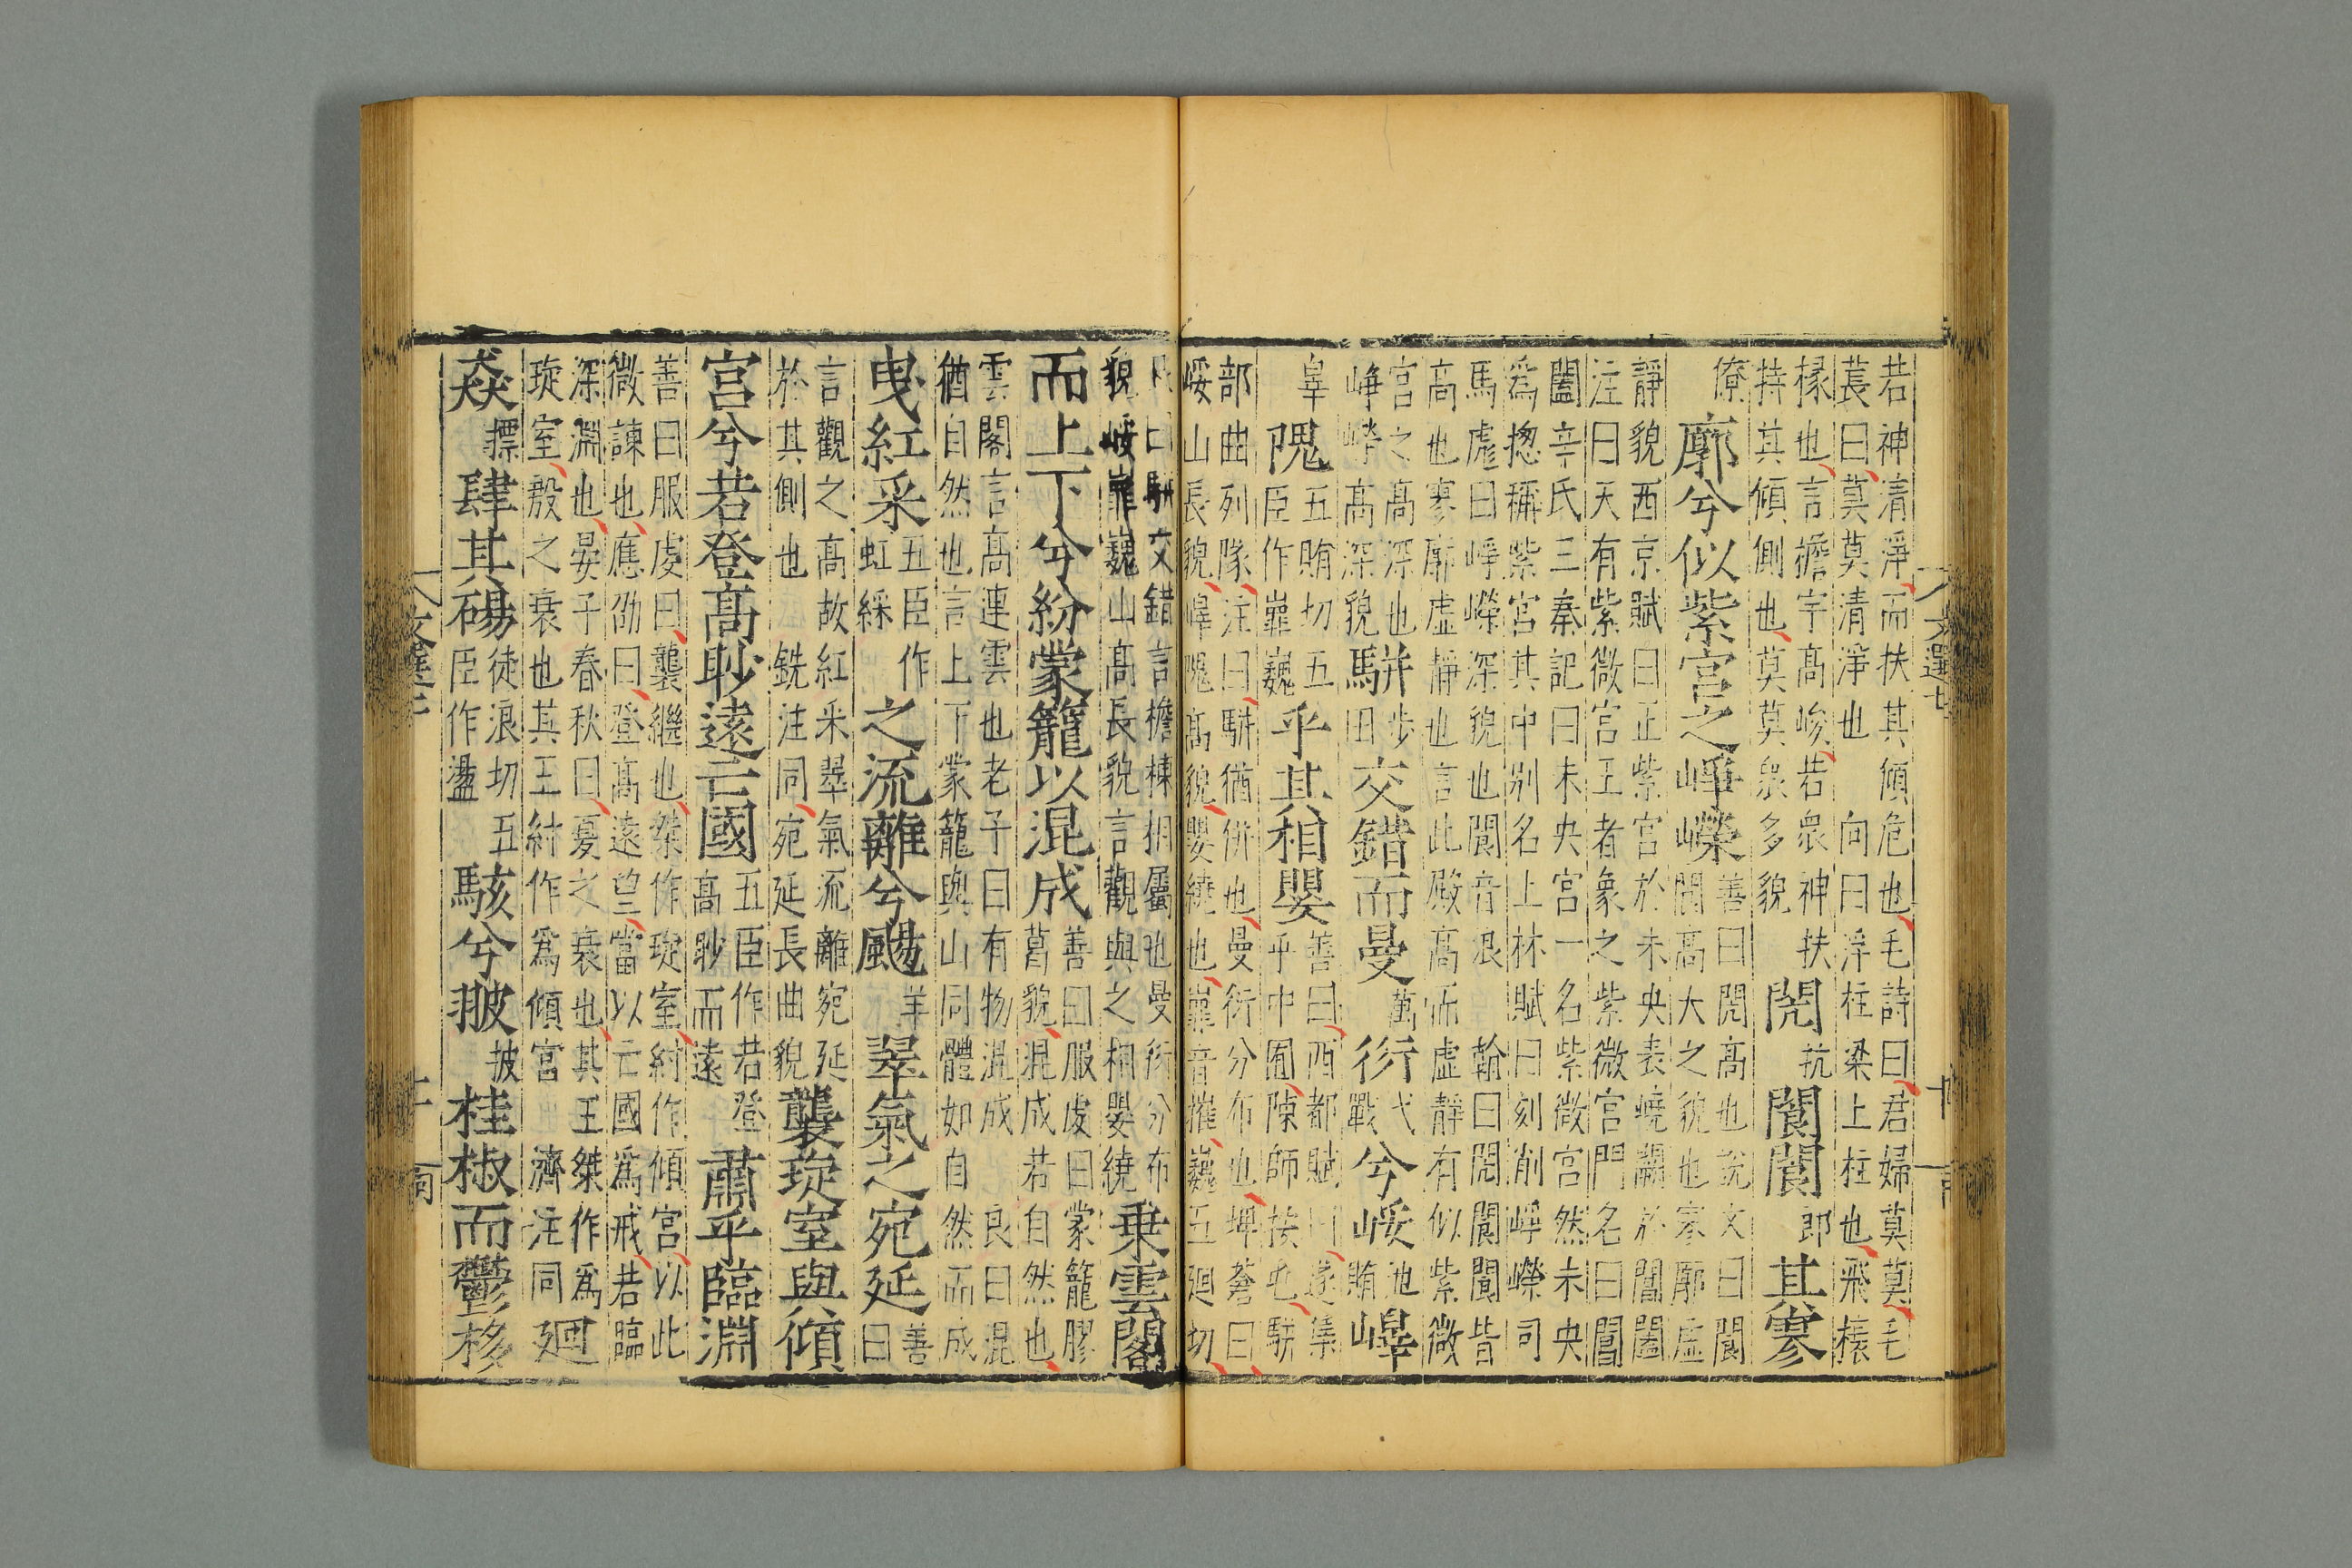 若神清淨而扶其傾危也毛詩曰君婦莫莫毛
萇曰莫莫清淨也 向曰浮柱梁上柱也飛榱
椽也言檐宇高峻若衆神扶
持其傾側也莫莫衆多貌
閌抗閬閬郎其寥
僚廓兮似紫宮之崢嶸
善曰閌高也說文曰閬
閬高大之貌也寥廓虛
靜貌西京賦曰正紫宮於未央表嶢闕於閶闔
注曰天有紫微宮王者象之紫微宮門名曰閶
闔辛氏三秦記曰未央宮一名紫微宮然未央
爲揔稱紫宮其中別名上林賦曰刻削崢嶸司
馬彪曰崢嶸深貌也閬音浪 翰曰閌閬閬皆
高也寥廓虛靜也言此殿高而虛靜有似紫微
宮之高深也
崢嶸高深貌
駢步田交錯而曼萬衍弋戰兮㟎池賄嶵
辠隗
五賄切五
臣作嶵巍
乎其相嬰
善曰西都賦曰遂集
乎中囿陳師按屯駢
部曲列隊注曰駢猶併也曼衍分布也埤蒼曰
㟎山長貌嶵隗高貌嬰繞也嶵音摧巍五廻切
曰駢交錯言檐棟相屬也曼衍分布
貌㟎嶵巍山高長貌言觀與之相嬰繞
乗雲閣
而上下兮紛蒙籠以混成
善曰服虔曰蒙籠膠
葛貌混成若自然也
雲閣言高連雲也老子曰有物混成 良曰混
猶自然也言上下蒙籠與山同體如自然而成
曳紅采
五臣作
虹綵
之流離兮颺羊翠氣之宛延
善
曰
言觀之高故紅采翠氣流離宛延
於其側也 銑注同宛延長曲貌
襲琁室與傾
宮兮若登高眇遠亡國
五臣作若登
高眇而遠
肅乎臨淵
善曰服虔曰襲繼也桀作琁室紂作傾宮以此
微諫也應劭曰登高遠望當以亡國爲戒若臨
深淵也晏子春秋曰夏之衰也其王桀作爲
琁室殷之衰也其王紂作爲傾宮 濟注同
廻
猋摽肆其碭
徒浪切五
臣作盪
駭兮翍披桂椒而鬱栘